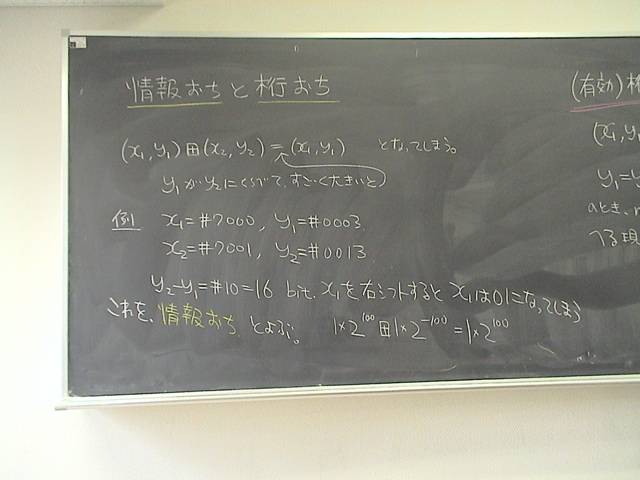 情報おちと桁おち
(x₁,y₁)⊞(x₂,y₂)=(x₁,y₁) となってしまう。
y₁がy₂にくらべて、すごく大きいと
例 x₁=#7000, y₁=#0003
x₂=#7001, y₂=#0013
y₂-y₁=#10=16 bit. x₁を右シフトすると x₁は0になってしまう
これを、情報おち とよぶ。 1×2¹⁰⁰⊞1×2⁻¹⁰⁰=1×2¹⁰⁰
(有効)桁
(x₁,y₁
y₁=y
のとき、
へる現